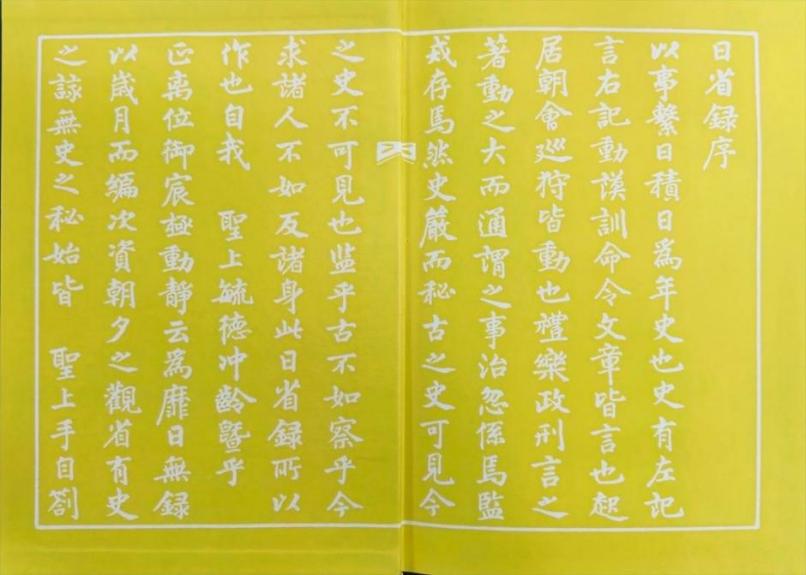 日省録序
以事繫日積日爲年史也史有左記
言右記動謨訓命令文章皆言也起
居朝會廵狩皆動也禮樂政刑言之
著動之大而通謂之事治忽係焉監
戒存焉然史嚴而秘古之史可見今
之史不可見也监乎古不如察乎今
求諸人不如反諸身此日省録所以
作也自我 聖上毓德冲齡曁乎
正离位御宸極動靜云爲靡日無録
以歲月而編次資朝夕之觀省有史
之諒無史之秘始皆 聖上手自劄